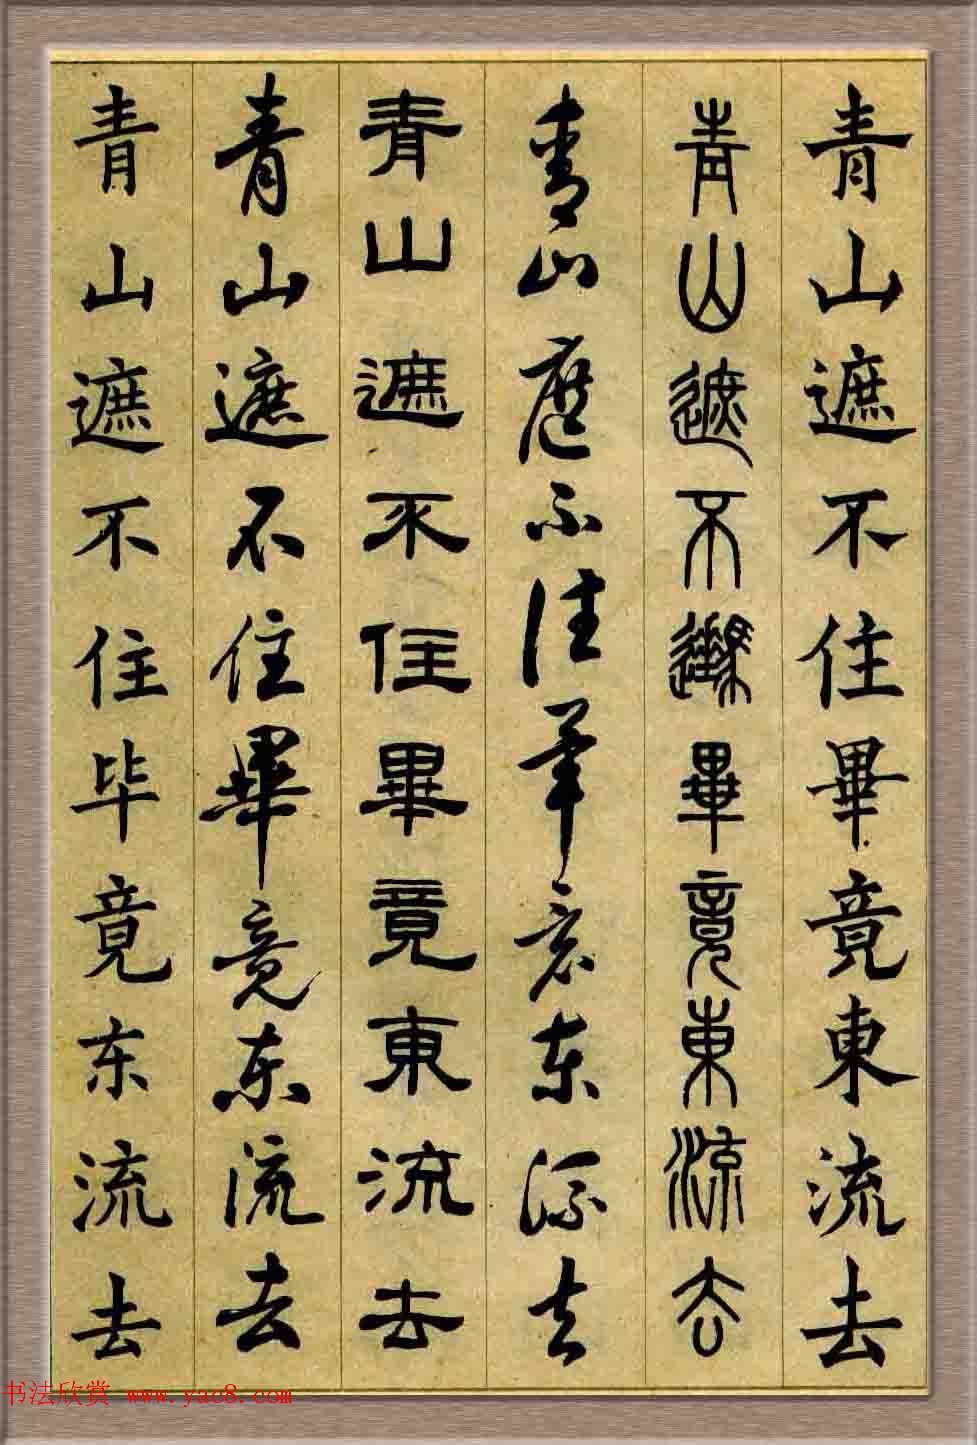 青山遮不住畢竟東流去
青山遮不住畢竟東流去
青山遮不住畢竟东流去
青山遮不住畢竟東流去
青山遮不住畢竟东流去
青山遮不住毕竟东流去
书法欣赏 www.yac8.com